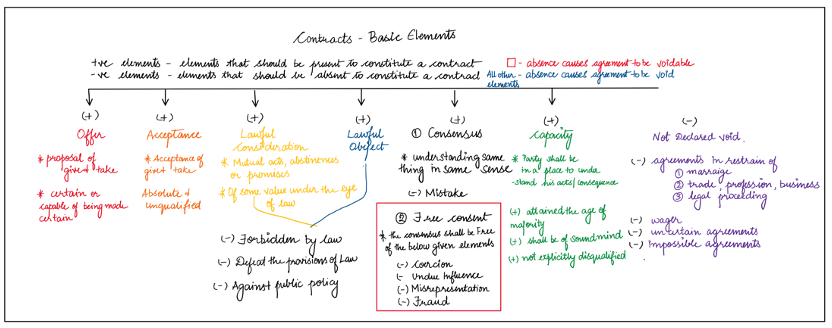 Contracts - Basic Elements
+ve elements - elements that should be present to constitute a contract
-ve elements - elements that should be absent to constitute a contract
- absence causes agreement to be voidable
All other elements - absence causes agreement to be void
(+)
Offer
* proposal of
give & take
* certain or
capable of being made
certain
(+)
Acceptance
* Acceptance of
give & take
Absolute &
unqualified
(+)
Lawful
Consideration
* Mutual acts, abstinences
or promises
* Of some value under the eye
of law
(+)
Lawful
Object
(-) Forbidden by law
(-) Defeat the provisions of Law
(-) Against public policy
(+)
① Consensus
* understanding same
thing in same sense
(-) Mistake
② Free consent
* the consensus shall be Free
of the below given elements
(-) Corcion
(-) Undue Influence
(-) Misrepresentation
(-) Fraud
(+)
Capacity
* Party shall be
in a place to under
-stand his acts & consequence
(+) attained the age of
majority
(+) shall be of sound mind
(+) not explicitly disqualified.
(-)
Not Declared void.
(-) agreements in restrain of
① marraige
② trade, profession, business
③ legal proceeding
(-) wager
(-) uncertain agreements
(-) Impossible agreements